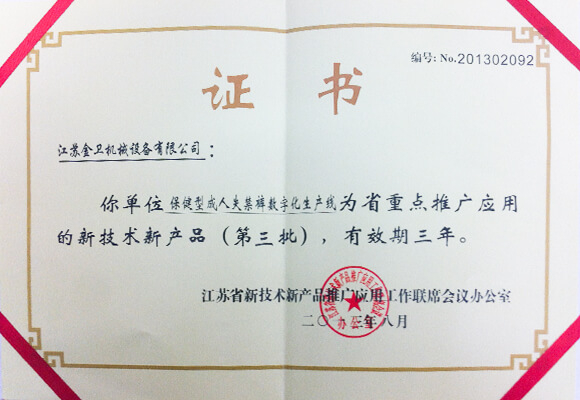 编号: No.201302092
证书
江苏金卫机械设备有限公司：
你单位保健型成人失禁裤数字化生产线为省重点推广应用
的新技术新产品（第三批），有效期三年。
江苏省新技术新产品推广应用工作联席会议办公室
二〇一三年八月